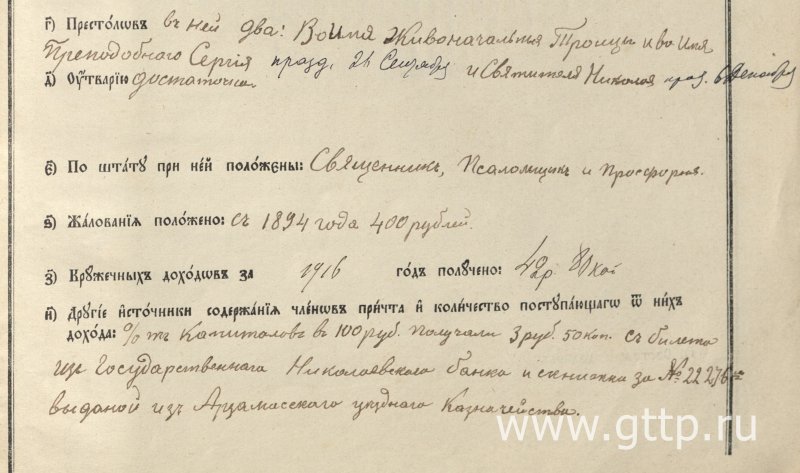 г) Престо́лѡвъ въ ней два: Во имя Живоначальныя Троицы и во имя
Преподобного Сергiя празд. 25 Сентября и Святителя Николая праз. 6 Декабря
д) Оу́тварїю достаточна
є) По шта́тꙋ при не́й поло́жены: Священникъ, Псаломщикъ и Просфорня.
ѕ) Жа́лованїѧ поло́жено: съ 1894 года 400 рублей.
з) Крꙋ́жечныхъ дохо́дѡвъ за 1916 го́дъ полꙋчено: 42 р. 80 коп
и) Дрꙋгі́е и҆сто́чники содержа́нїѧ чле́нѡвъ при́чта и҆ коли́чество постꙋпа́ющагѡ ѿ ни́хъ
дохо́да: % тъ Капиталовъ въ 100 руб. Получали 3 руб. 50 коп. съ билета
изъ Государственнаго Николаевского банка и книжки за № 22276
выданой изъ Арзамасского уѣздного Казначейства.
www.gttp.ru